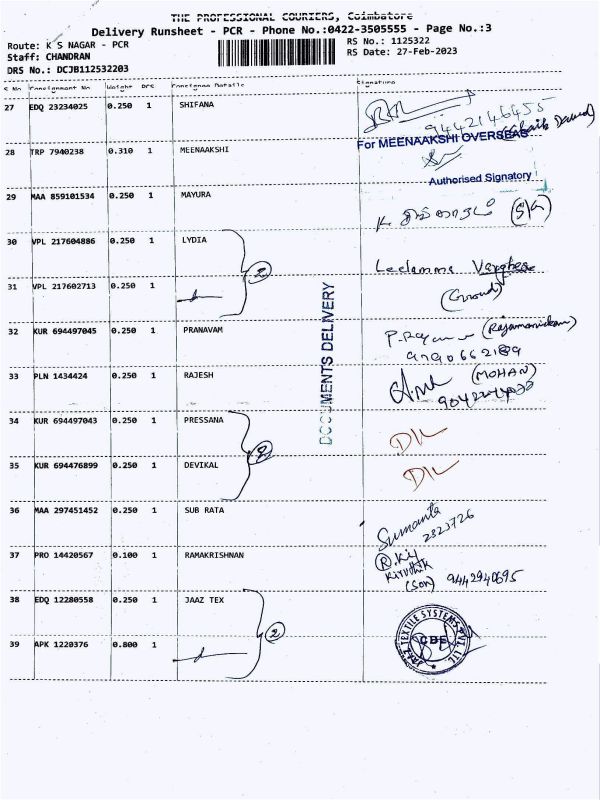 THE PROFESSIONAL COURIERS, Coimbatore
Delivery Runsheet - PCR - Phone No.:0422-3505555 - Page No.:3
Route: K S NAGAR - PCR
RS No.: 1125322
Staff: CHANDRAN
RS Date: 27-Feb-2023
DRS No.: DCJB112532203
S No Consignment No Weight PCS Consignee Details Signature
27 EDQ 23234025 0.250 1 SHIFANA
9442146455
28 TRP 7940238 0.310 1 MEENAAKSHI
For MEENAAKSHI OVERSEAS
Authorised Signatory
29 MAA 859101534 0.250 1 MAYURA
30 VPL 217604886 0.250 1 LYDIA
2
Leelamma Varghese
31 VPL 217602713 0.250 1
(Ground)
DOCUMENTS DELIVERY
32 KUR 694497045 0.250 1 PRANAVAM
(Rajamanickam)
33 PLN 1434424 0.250 1 RAJESH
(MOHAN)
34 KUR 694497043 0.250 1 PRESSANA
2
35 KUR 694476899 0.250 1 DEVIKAL
36 MAA 297451452 0.250 1 SUB RATA
Sumanta
2323726
37 PRO 14420567 0.100 1 RAMAKRISHNAN
(Son) 9442940695
38 EDQ 12280558 0.250 1 JAAZ TEX
2
39 APK 1220376 0.800 1
TEXTILE SYSTEMS PVT. LTD.
CBE